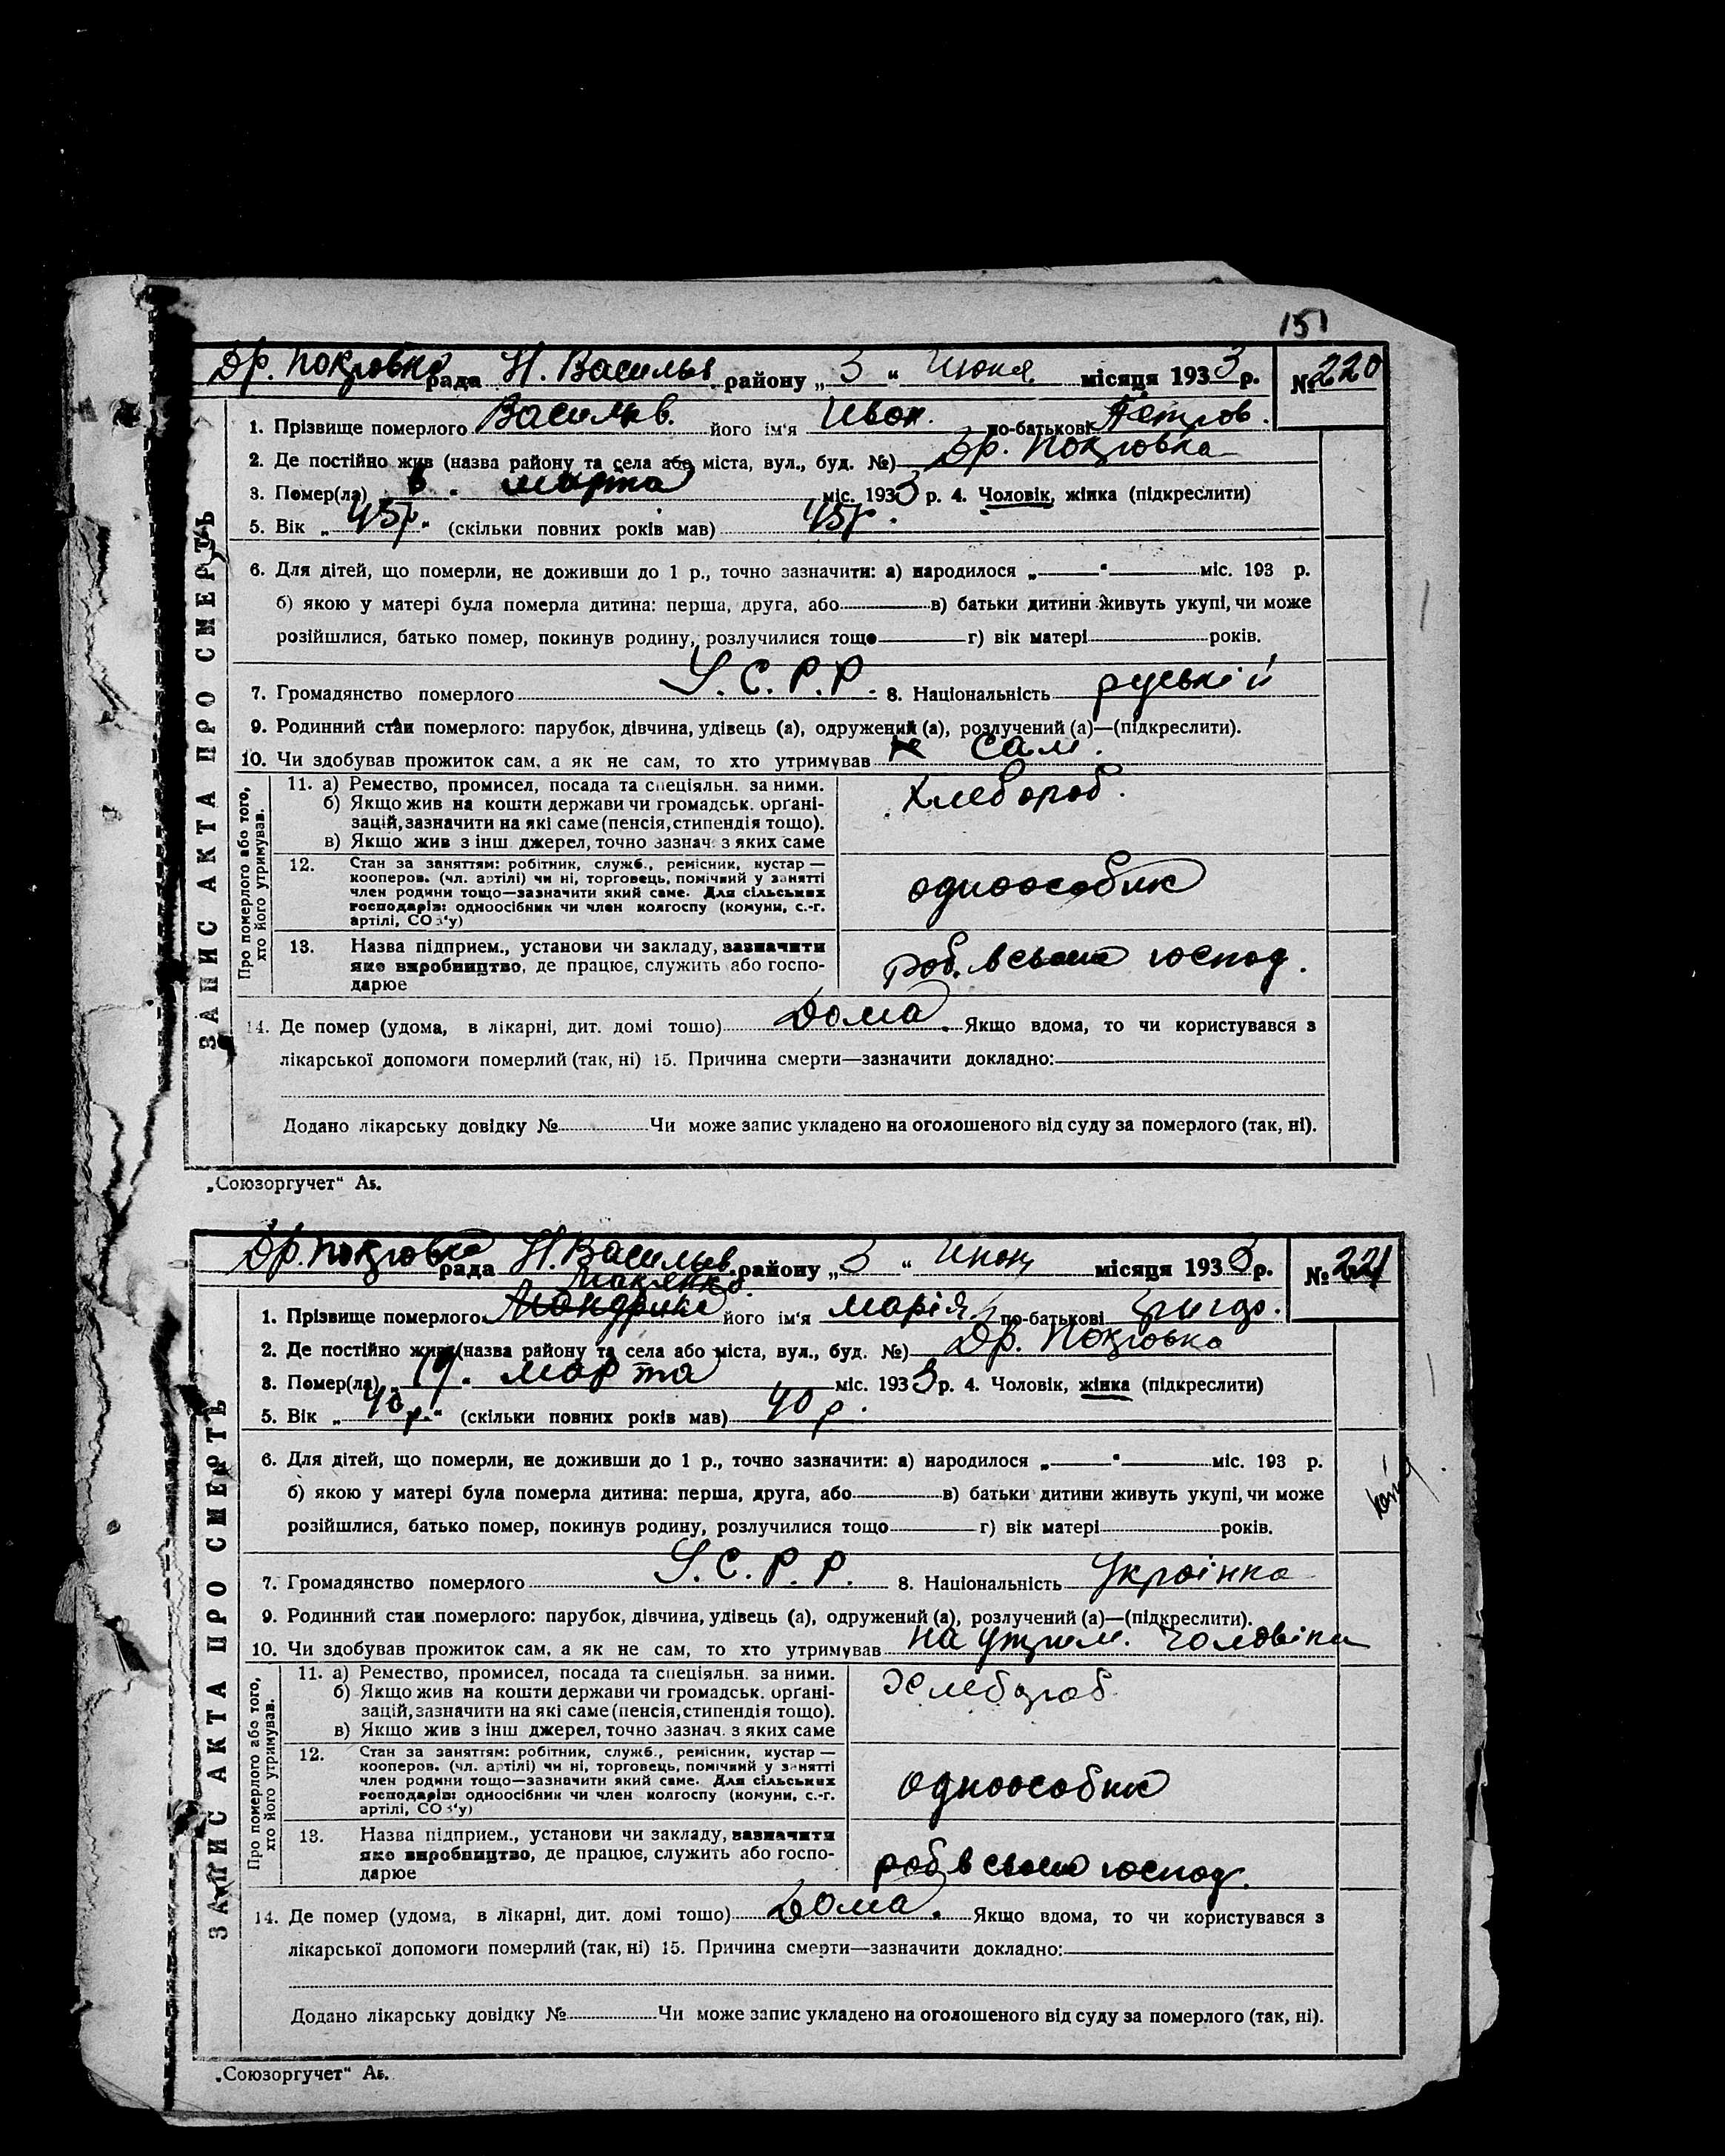 151
Др. Покровка рада Н. Васильев. району „ 3 “ Июня місяця 1933 р. № 220
1. Прізвище померлого Васильв. його ім'я Иван. по-батькові Петров.
2. Де постійно жив (назва району та села або міста, вул., буд. №) Др. Покровка
3. Помер(ла) „ 6 . марта міс. 1933 р. 4. Чоловік, жінка (підкреслити)
5. Вік „ 45р. “ (скільки повних років мав) 45р.
6. Для дітей, що померли, не доживши до 1 р., точно зазначити: а) народилося „ “ міс. 193 р.
б) якою у матері була померла дитина: перша, друга, або в) батьки дитини живуть укупі, чи може
розійшлися, батько помер, покинув родину, розлучилися тощо г) вік матері років.
7. Громадянство померлого У.С.Р.Р. 8. Національність руській
9. Родинний стан померлого: парубок, дівчина, удівець (а), одружений (а), розлучений (а)—(підкреслити).
10. Чи здобував прожиток сам, а як не сам, то хто утримував сам.
ЗАПИС АКТА ПРО СМЕРТЬ
Про померлого або того,
хто його утримував.
11. а) Ремество, промисел, посада та спеціяльн. за ними. Хлебороб.
б) Якщо жив на кошти держави чи громадськ. органі-
зацій, зазначити на які саме (пенсія, стипендія тощо).
в) Якщо жив з інш джерел, точно зазнач. з яких саме
12. Стан за заняттям: робітник, служб., ремісник, кустар —
кооперов. (чл. артілі) чи ні, торговець, помічний у занятті
член родини тощо—зазначити який саме. Для сільських
господарів: одноосібник чи член колгоспу (комуни, с.-г.
артілі, СОЗ'у)
одноособник
13. Назва підприєм., установи чи закладу, зазначити
яке виробництво, де працює, служить або госпо-
дарює
роб. в своем господ.
14. Де помер (удома, в лікарні, дит. домі тошо) Дома. Якщо вдома, то чи користувався з
лікарської допомоги померлий (так, ні) 15. Причина смерти—зазначити докладно:
Додано лікарську довідку № Чи може запис укладено на оголошеного від суду за померлого (так, ні).
„Союзоргучет“ А5.
Др. Покровка рада Н. Васильев. району „ 3 “ Июня місяця 1933 р. № 221
1. Прізвище померлого його ім'я Марія по-батькові Григор.
2. Де постійно жив (назва району та села або міста, вул., буд. №) Др. Покровка
3. Помер(ла) „ 19. марта міс. 1933 р. 4. Чоловік, жінка (підкреслити)
5. Вік „ 40 р. “ (скільки повних років мав) 40 р.
6. Для дітей, що померли, не доживши до 1 р., точно зазначити: а) народилося „ “ міс. 193 р.
б) якою у матері була померла дитина: перша, друга, або в) батьки дитини живуть укупі, чи може
розійшлися, батько помер, покинув родину, розлучилися тощо г) вік матері років.
7. Громадянство померлого У.С.Р.Р. 8. Національність Украінка
9. Родинний стан померлого: парубок, дівчина, удівець (а), одружений (а), розлучений (а)—(підкреслити).
10. Чи здобував прожиток сам, а як не сам, то хто утримував на утрим. Чоловіка
ЗАПИС АКТА ПРО СМЕРТЬ
Про померлого або того,
хто його утримував.
11. а) Ремество, промисел, посада та спеціяльн. за ними. Хлебороб
б) Якщо жив на кошти держави чи громадськ. органі-
зацій, зазначити на які саме (пенсія, стипендія тощо).
в) Якщо жив з інш джерел, точно зазнач. з яких саме
12. Стан за заняттям: робітник, служб., ремісник, кустар —
кооперов. (чл. артілі) чи ні, торговець, помічний у занятті
член родини тощо—зазначити який саме. Для сільських
господарів: одноосібник чи член колгоспу (комуни, с.-г.
артілі, СОЗ'у)
одноособник
13. Назва підприєм., установи чи закладу, зазначити
яке виробництво, де працює, служить або госпо-
дарює
роб в своем господ.
14. Де помер (удома, в лікарні, дит. домі тошо) Дома. Якщо вдома, то чи користувався з
лікарської допомоги померлий (так, ні) 15. Причина смерти—зазначити докладно:
Додано лікарську довідку № Чи може запис укладено на оголошеного від суду за померлого (так, ні).
„Союзоргучет“ А5.